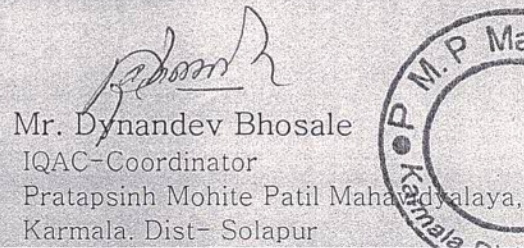 Mr. Dynandev Bhosale
IQAC-Coordinator
Pratapsinh Mohite Patil Mahavidyalaya,
Karmala. Dist- Solapur
P. M. P Ma
Karmala